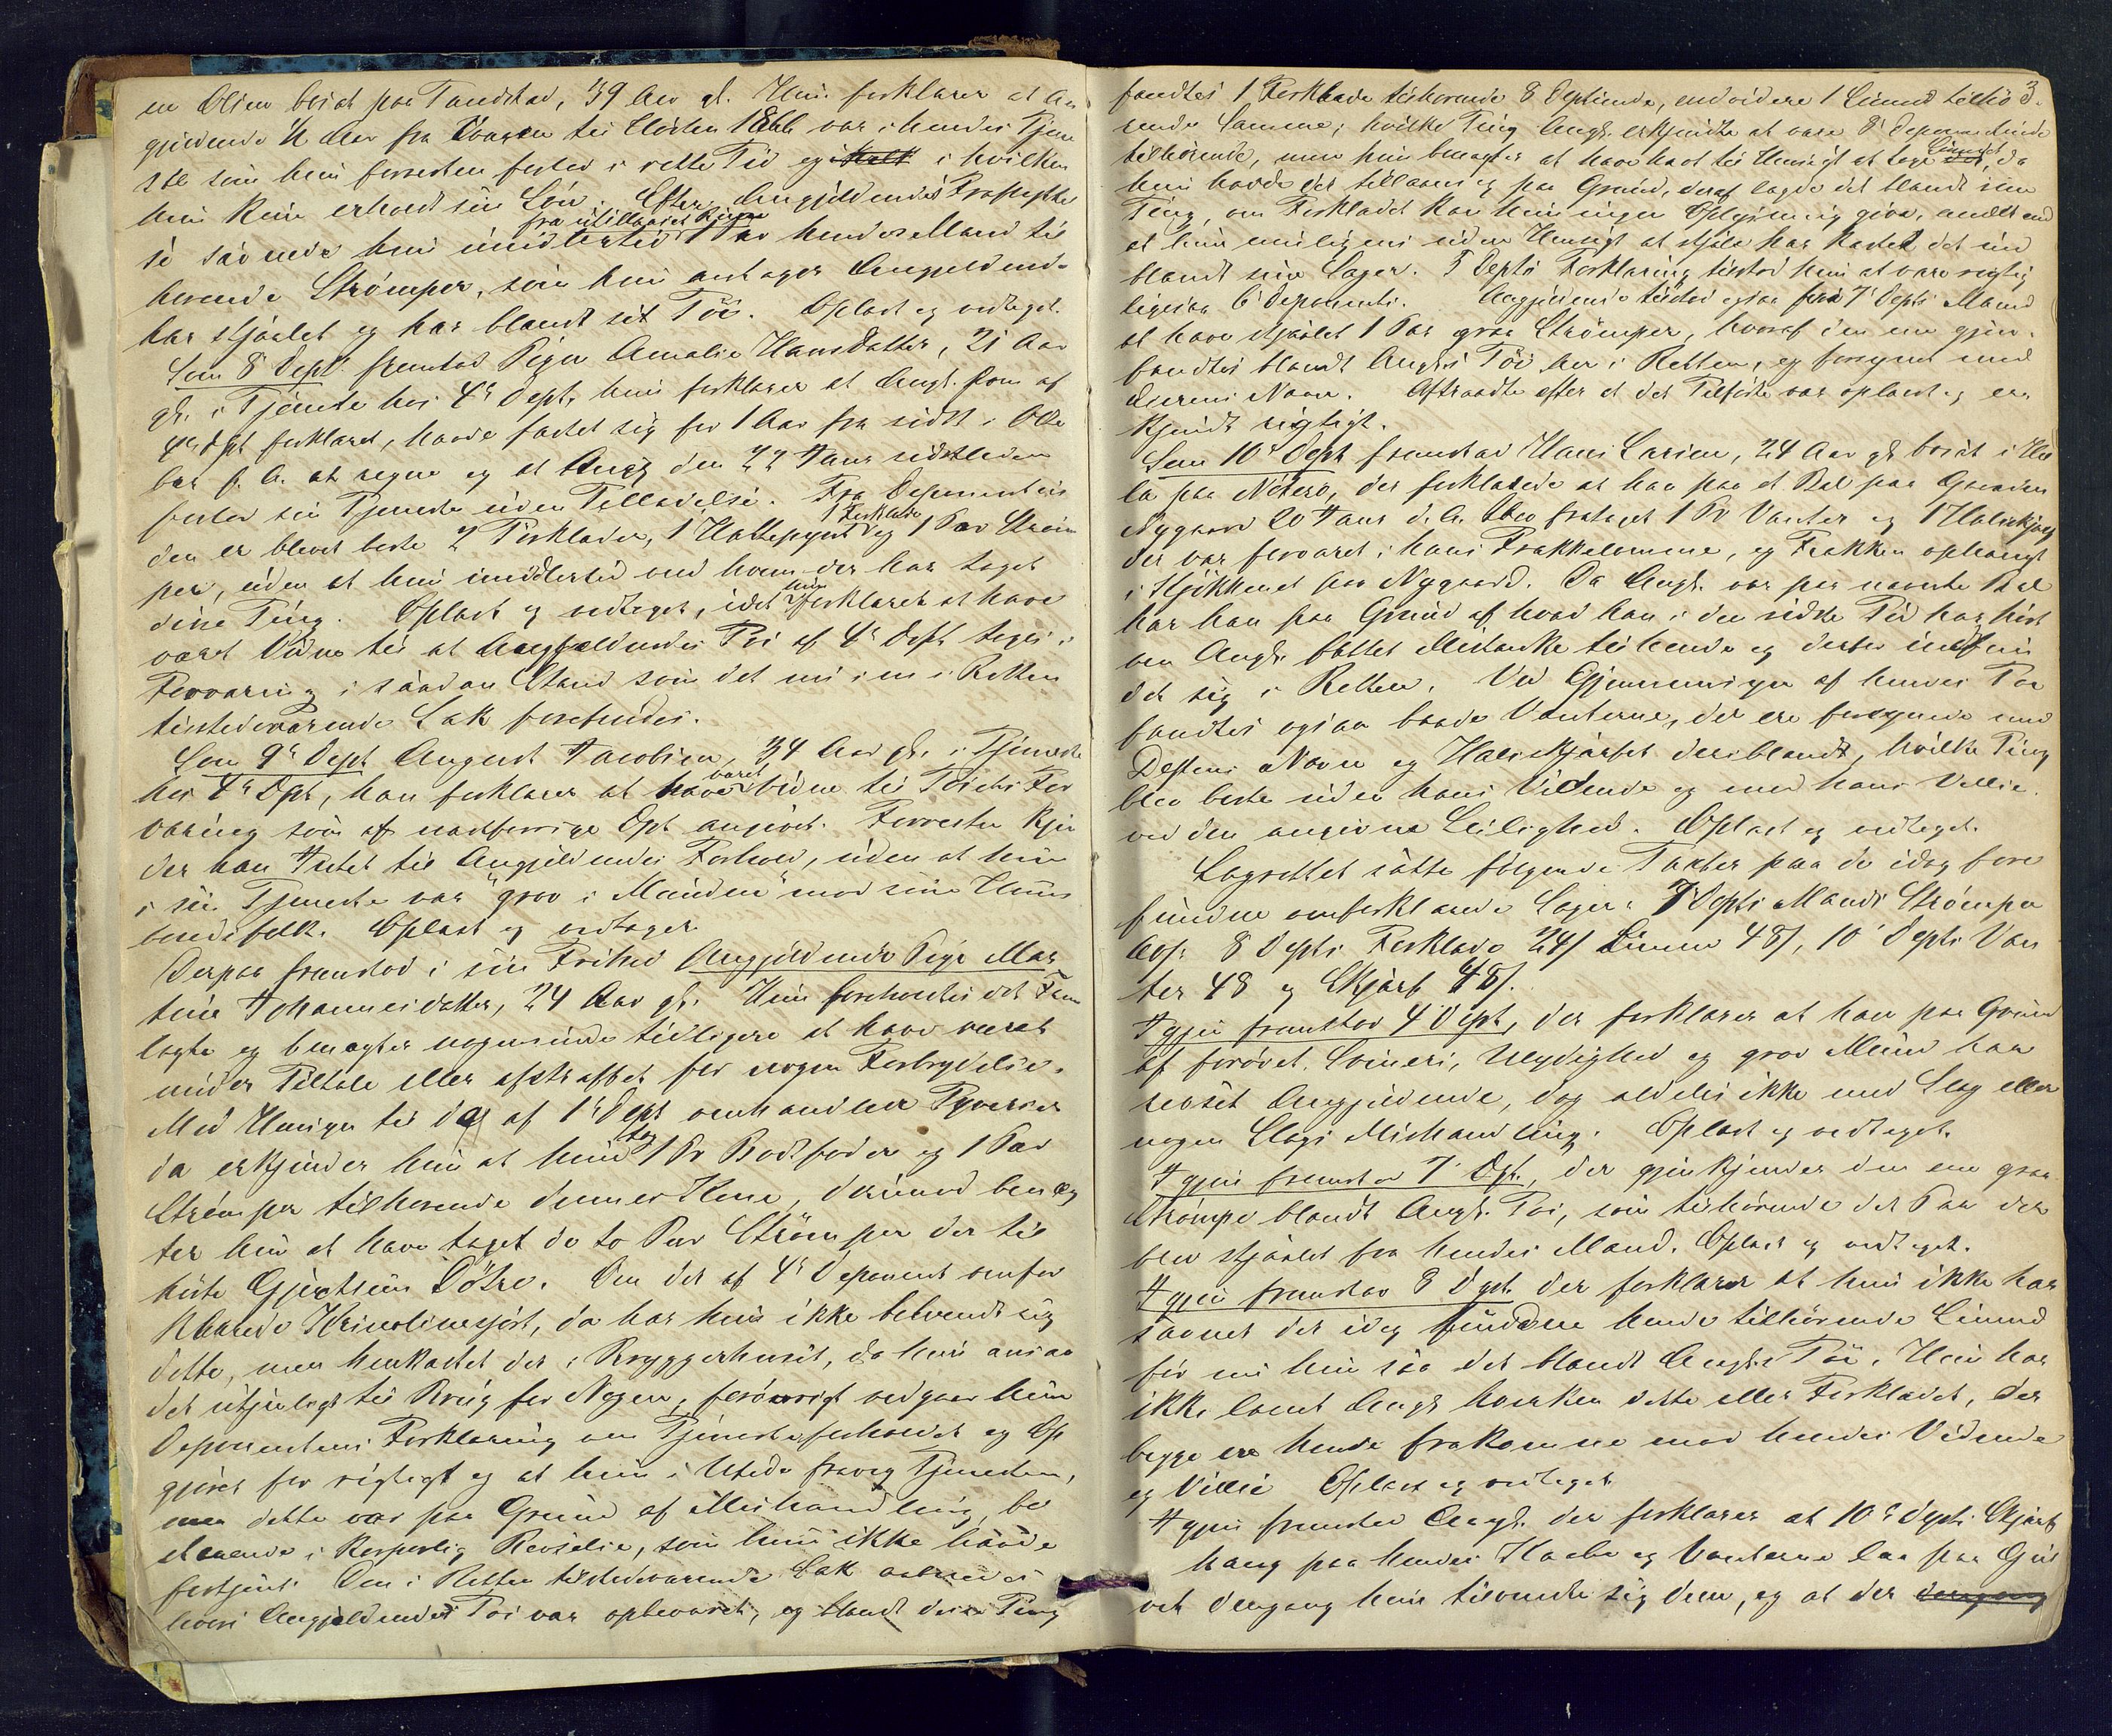 en Olsen bosat paa Tandstad, 39 Aar gl. Hun forklarer at An
gjeldende ½ Aar fra Vaaren til Hösten 1866 var i hendes Tjene
ste som hun forresten forlod i rette Tid og i hvilken
hun kun erholdt sin Lön. Efter Angjeldendes Fraflyttel
se savnede hun imidlertid fra Pigen 1 Par hendes Mand til
hörende Strömper, som hun antager Angjeldende
har stjaalet og har blandt sit Töi. Oplæst og vedtaget.
Som 8de Dept. fremstod Pigen Amalie Hansdatter, 21 Aar
gl. i Tjeneste hos 4de Dept. hun forklarer at Angl. som af
4de Dpt forklaret, havde fæstet sig for 1 Aar fra sidst i Octo
ber f. A. at regne og at Angl. den 22 Januar sidstleden
forlod sin Tjeneste uden Tilladelse. Fra Deponentin
den er blevet borte 2 Forklæder, 1 Hattepynt 1 Forklæde og 1 Par Ström
per, uden at hun imidlertid ved hvem der har taget
disse Ting. Oplæst og vedtaget, idet hun forklarede at have
været Vidne til at Angjeldendes Töi af 4de Dept toges i
Forvaring i saadan Stand som det nu i en i Retten
tilstedeværende Sæk forefindes.
Som 9de Dept August Jacobsen, 34 Aar gl. i Tjeneste
hos 4de Dpt, han forklarer at have været Vidne til Töiets For
varing som af næstforrige Dpt angivet. Forresten kjen
der han Intet til Angjeldendes Forhold, uden at hun
i sin Tjeneste var "grov i Munden" mod sine Huus
bondsfolk. Oplæst og vedtaget.
Derpaa fremstod i sin Frihed Angjeldende Pige Mar
tine Johannesdatter, 24 Aar gl. Hun foreholdtes det Frem
lagte og benægter nogensinde tidligere at have været
under Tiltale eller afstraffet for nogen Forbrydelse.
Med Hensyn til de af 1ste Dept omhandlede Tyverier
da erkjender hun at hun tog 1 Pr Bodsforer og 1 Par
Strömper tilhörende dennes Kone, derimod benæg
ter hun at have taget de to Par Strömper der til
hörte Gjertsens Döttre. Om det af 4de Deponent omfor
klarede Krinolineskjört, da har hun ikke tilvendt sig
dette, men henkastet det i Bryggerhuset, da hun ansaa
det utjenligt til Brug for Nogen, forövrigt vedgaar hun
Deponentens Forklaring om Tjenesteforholdet og Op
gjöret for rigtigt og at hun i Utide fraveg Tjenesten,
men dette var paa Grund af Mishandling, be
staaende i korporlig Revselse, som hun ikke havde
fortjent. Den i Retten tilstedeværende Sæk aabnedes
hvori Angjeldendes Töi var opbevaret, og blandt disse Ting
3.
fandtes 1 Forklæde tilhörende 8 Deptinde, endvidere 1 Linned tilhö
rende Samme; hvilke Ting Angl. erkjendte at være 8de Deponentinde
tilhörende, men hun benægter at have havt til Hensigt at tage Linnedet, da
hun havde det tillaans og paa Grund deraf lagde det blandt sine
Ting, om Forklædet kan hun ingen Oplysning give, andet end
at hun muligens uden Hensigt at stjæle har kastet det ind
blandt sine Sager. 5 Depts Forklaring tilstod hun at være rigtig
ligesaa 6 Deponents. Angjeldende tilstod ogsaa fra 7de Depts Mand
at have stjaalet 1 Par graa Strömper, hvoraf den ene gjen
fandtes blandt Angls Töi her i Retten, og forsynet med
Eierens Navn. Aftraadte efter at det Tilförte var oplæst og er
kjendt rigtigt.
Som 10de Dept fremstod Hans Larsen, 24 Aar gl bosat i Hel
la paa Nöterö, der forklarede at han paa et Bal paa Gaarden
Nygaard 20 Januar d. A. blev frataget 1 Pr Vanter og 1 Halsskjærf
der var forvaret i hans Frakkelomme, og Frakken ophængt
i Kjökkenet paa Nygaard. Da Angl. var paa nævnte Bal
har han paa Grund af hvad han i den sidste Tid har hört
om Angl. fattet Mistanke til hende og derfor indfun
det sig i Retten. Ved Gjennemsyn af hendes Töi
fandtes ogsaa baade Vanterne, der ere forsynede med
Deptens Navn og Halsskjærfet deriblandt, hvilke Ting
blev borte uden hans Vidende og mod hans Villie
ved den angivne Leilighed. Oplæst og vedtaget.
Lagrettet satte fölgende Taxter paa de idag fore
fundne omforklarede Sager: 7de Depts Mands Strömper
8 Depts Forklæde 24/ Linned 48/, 10de Depts Van
ter 48 og Skjærf 48/.
Igjen fremstod 4 Dept, der forklarer at han paa Grund
af forövet Svineri, Ulydighed og grov Mund har
revset Angjeldende, dog aldeles ikke med Slag eller
nogen Slags Mishandling. Oplæst og vedtaget.
Igjen fremstod 7de Dpt., der gjenkjender den ene graa
Strömpe blandt Angl. Töi, som tilhörende det Par der
blev stjaalet fra hendes Mand. Oplæst og vedtaget.
Igjen fremstod 8 Dpt. der forklarer at hun ikke har
savnet det idag fundne hende tilhörende Linned
för nu hun saa det blandt Angls Töi. Hun har
ikke laant Angl hverken dette eller Forklædet, der
begge ere hende frakomne mod hendes Vidende
og Villie Oplæst og vedtaget
Igjen fremstod Angl. der forklarer at 10de Depts Skjærf
hang paa hendes Kaabe og Vanterne laa paa Gul
vet dengang hun tilvendte sig dem, og at der dengang